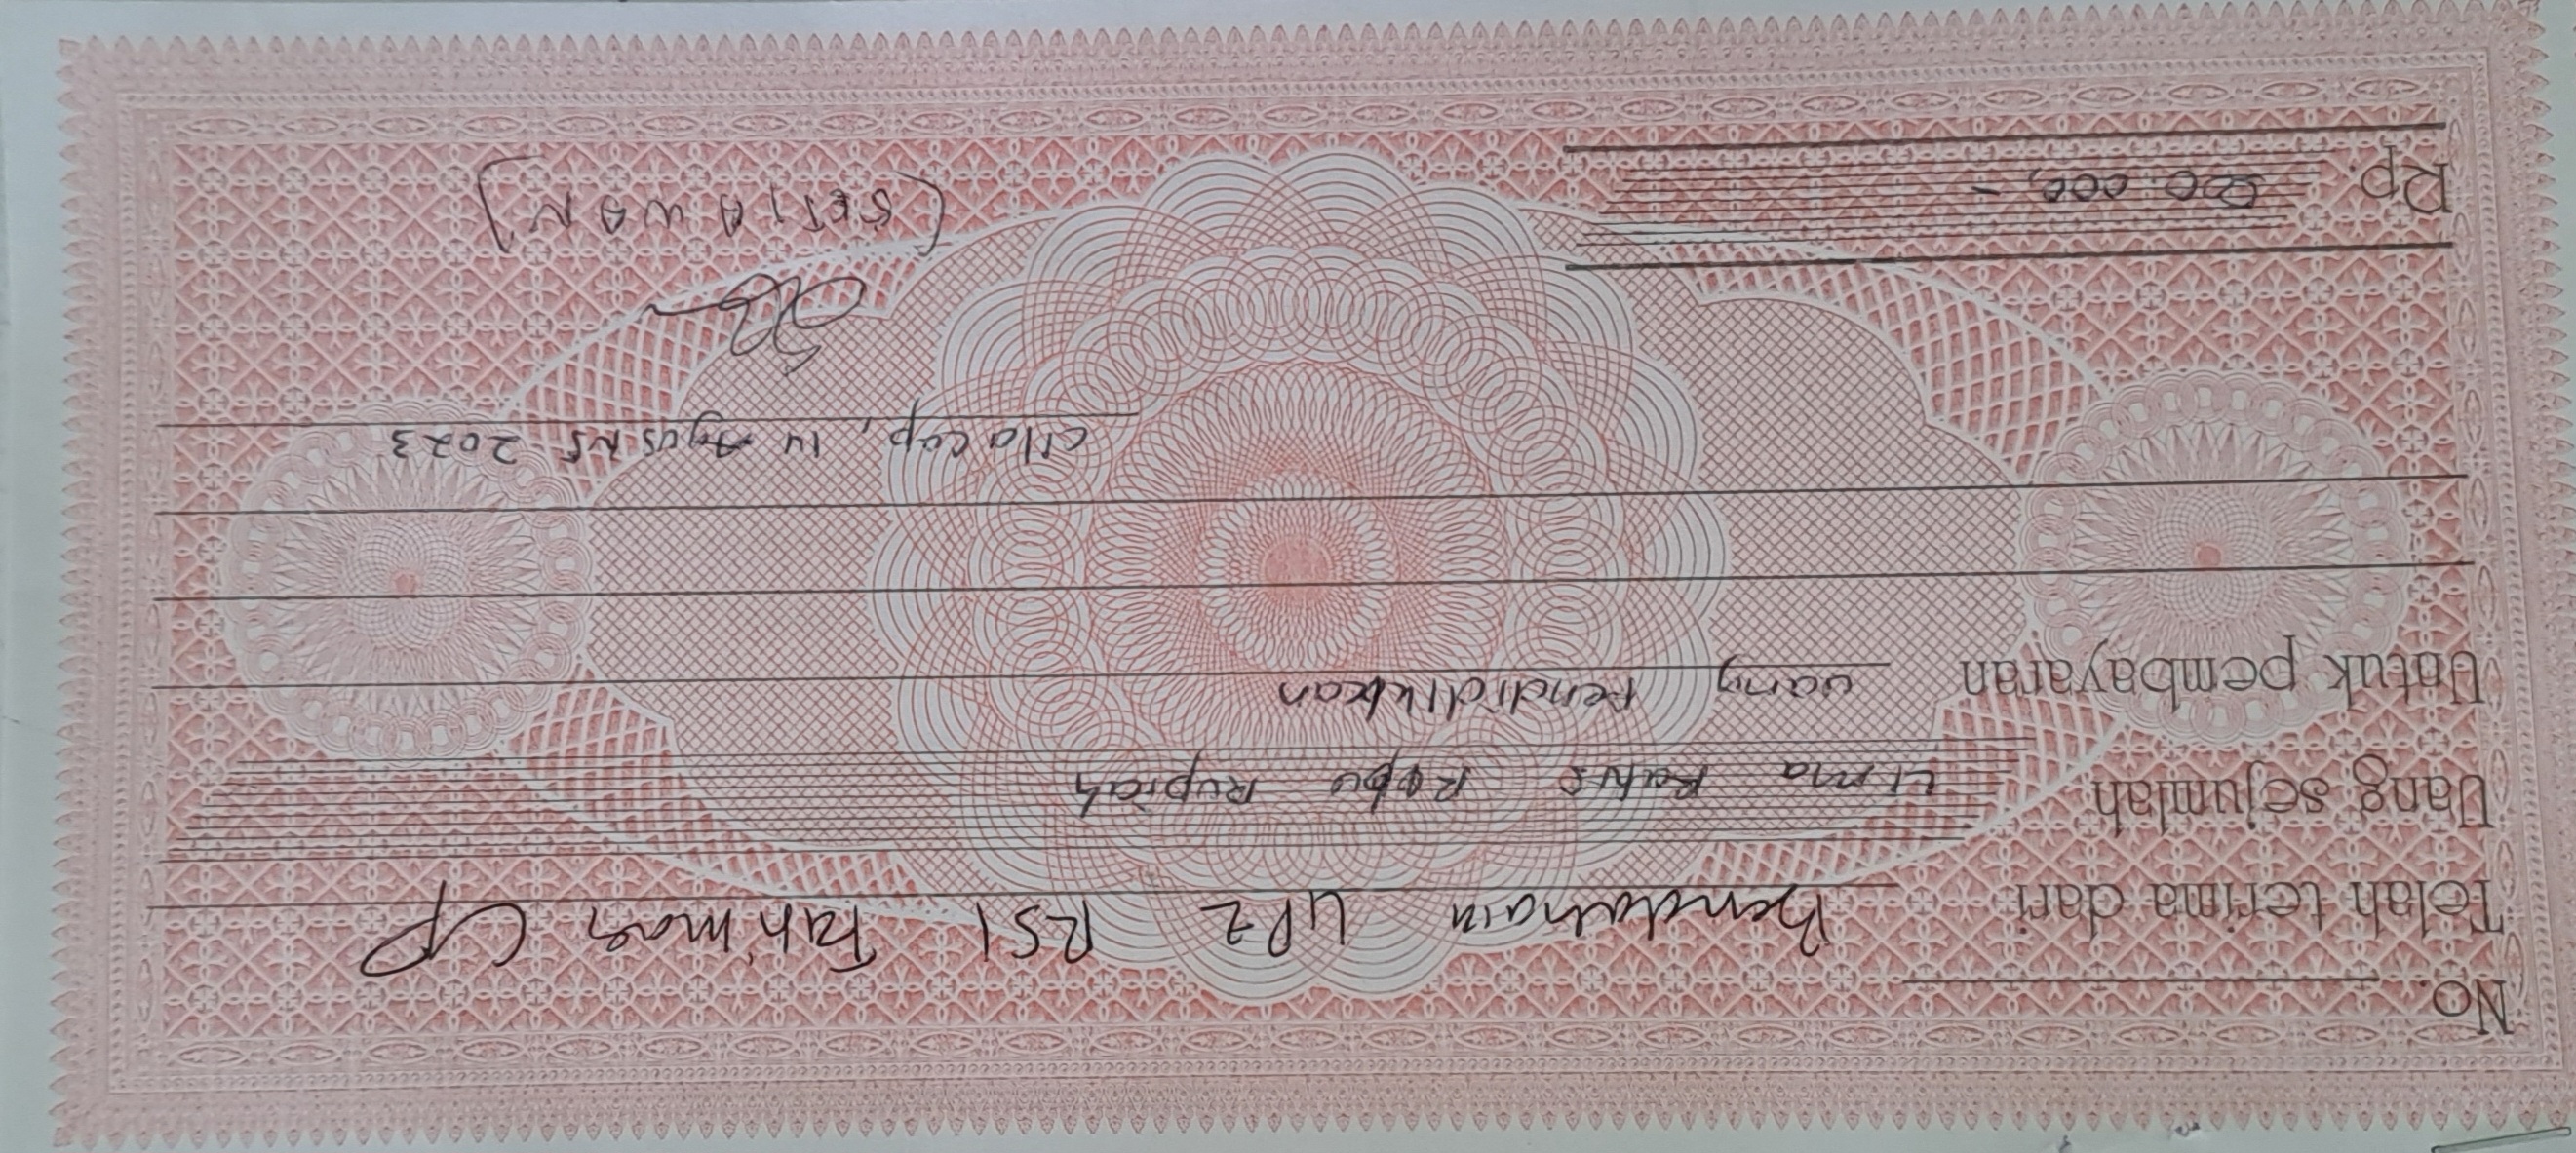 No.
Telah terima dari Bendahara UPZ RSI Fatimah CP
Uang sejumlah Lima Ratus Ribu Rupiah
Untuk pembayaran uang Pendidikan
Cilacap, 14 Agustus 2023
Rp. 500.000,-
(SETIAWAN)